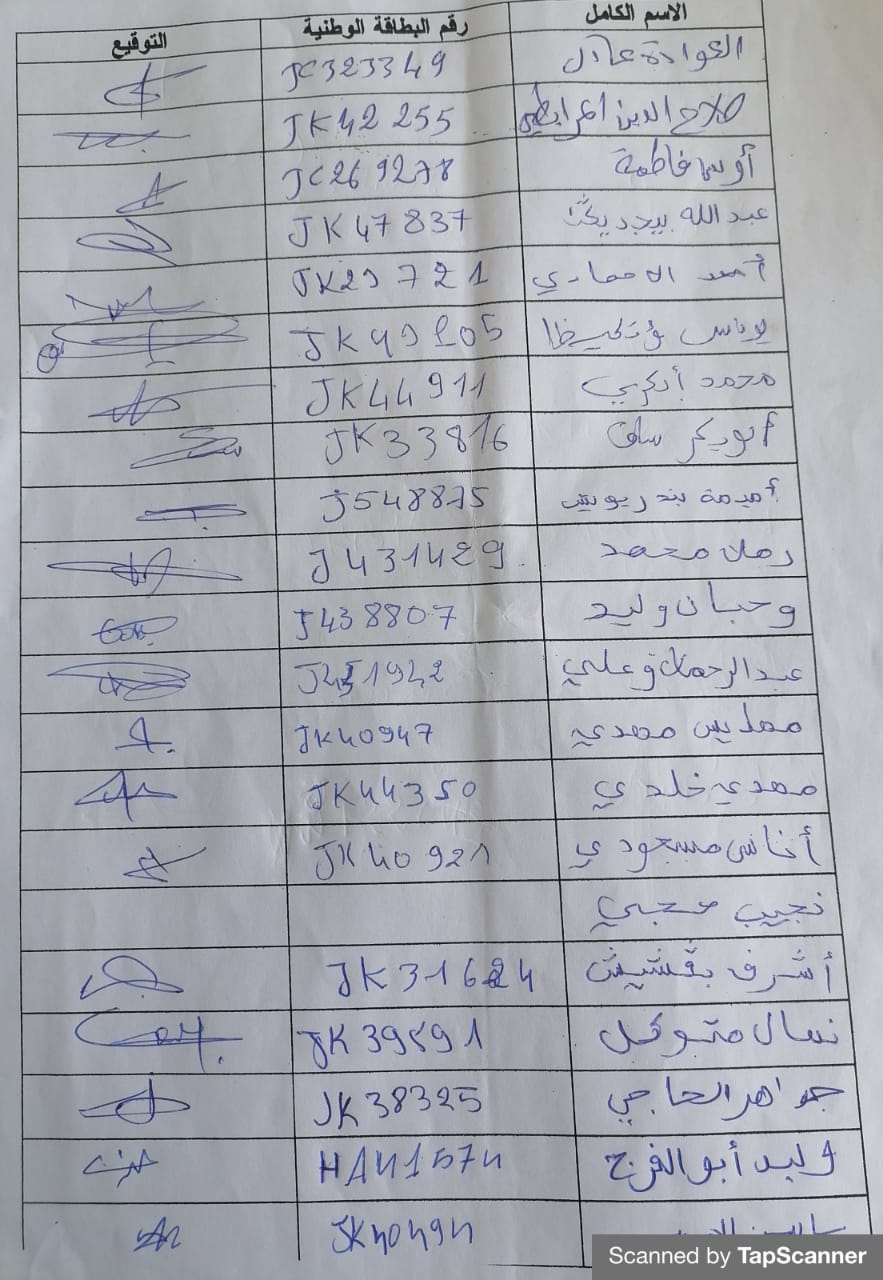 الاسم الكامل رقم البطاقة الوطنية التوقيع
العوادة عادل JC323349
صلاح الدين المرابطي JK42255
فاطمة JC269278
عبد الله JK47837
أحمد JK29721
JK49105
محمد JK44911
JK33816
أميمة J548875
محمد J431429
وحبان وليد J438807
عبد الرحمان وعلي
مهدي JK40947
مهدي خلدي JK44350
أناس مسعودي JK40921
نجيب محبي
أشرف بقشيش
نسال متوكل JK39591
جواهر الحاجي JK38325
وليد أبو الفرج HA41574
JK40494
Scanned by TapScanner